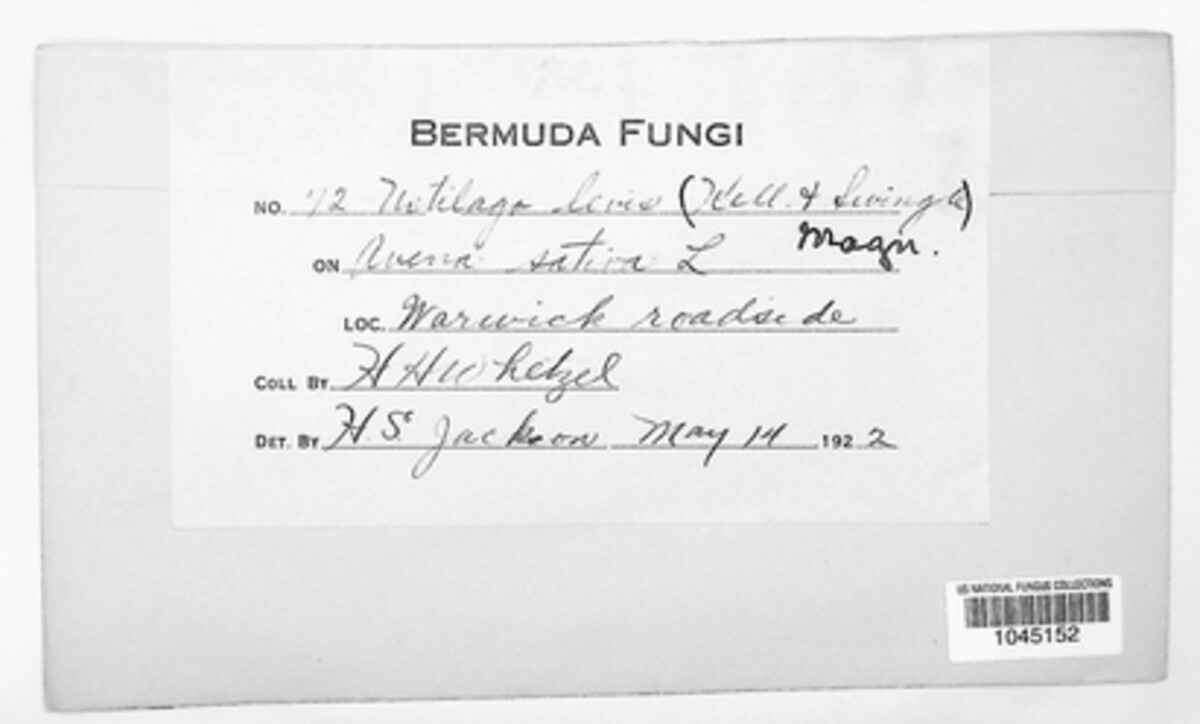 72
BERMUDA FUNGI
NO. 72 Ustilago levis (Kell. & Swingle)
Magn.
ON Avena sativa L
LOC. Warwick roadside
COLL BY H H Whetzel
DET. BY H. S. Jackson May 14 1922
US NATIONAL FUNGUS COLLECTIONS
1045152